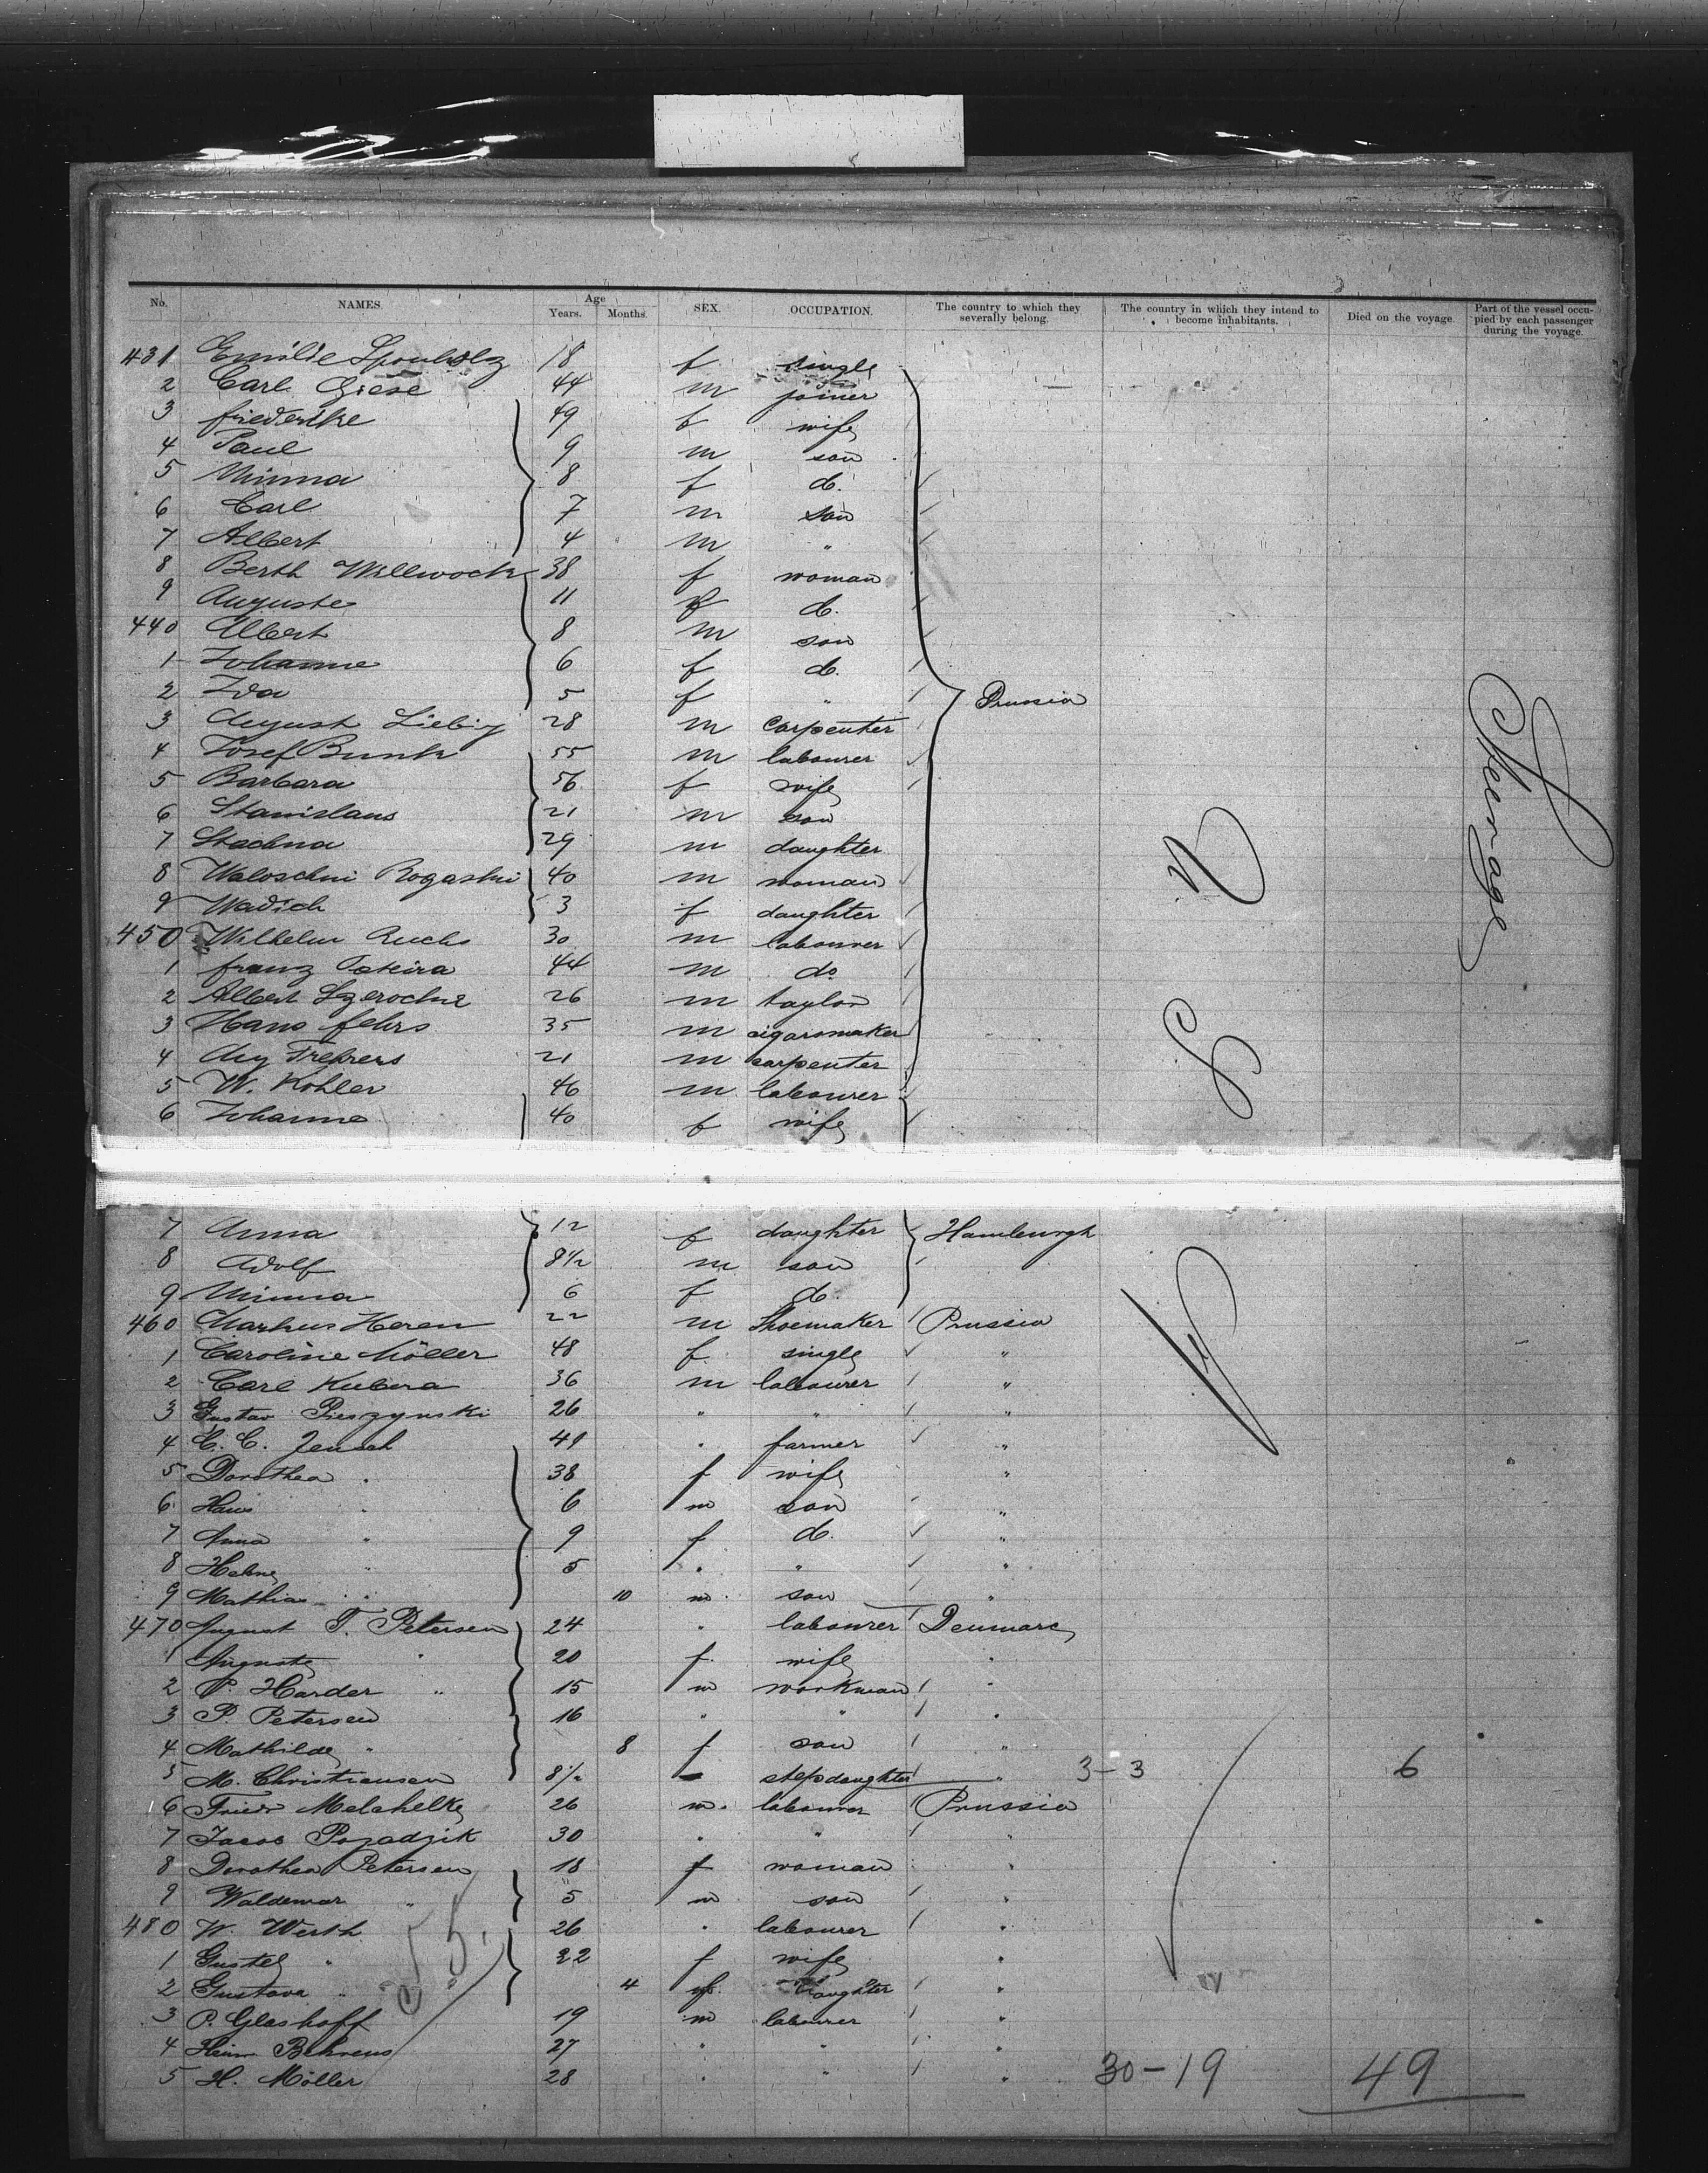 No. NAMES. Age Years. Months. SEX. OCCUPATION. The country to which they severally belong. The country in which they intend to become inhabitants. Died on the voyage. Part of the vessel occupied by each passenger during the voyage.
431 Emilie 18 f single
2 Carl Giese 44 m joiner
3 friederike 49 f wife
4 Paul 9 m son
5 Minna 8 f d.
6 Carl 7 m son
7 Albert 4 m "
8 Berth Willwock 38 f woman
9 Auguste 11 f d.
440 Albert 8 m son
1 Johanne 6 f d.
2 Ida 5 f " Prussia
3 August Liebig 28 m carpenter
4 Josef Bunk 55 m labourer
5 Barbara 56 f wife
6 Stanislaus 21 m son
7 Stachna 29 m daughter
8 Waloschni Rogaski 40 m woman
9 Wadich 3 f daughter
450 Wilhelm 30 m labourer
1 franz 44 m do
2 Albert 26 m taylor
3 Hans fehrs 35 m cigarsmaker
4 Aug 21 m carpenter
5 W. Kohler 46 m labourer
6 Johanne 40 f wife
U S A
Steerage
7 Anna 12 f daughter Hamburgh
8 Adolf 8 1/2 m son
9 Minna 6 f d.
460 Markus Heren 22 m Shoemaker Prussia
1 Caroline Möller 48 f single "
2 Carl Kubera 36 m labourer "
3 Gustav Pieszynski 26 " " "
4 C. C. 41 " farmer "
5 Dorothea " 38 f wife "
6 Hans " 6 m son "
7 Anna " 9 f d. "
8 Helene " 5 " " "
9 Mathias " 10 m son "
470 August T. Petersen 24 " labourer Denmarc
1 Auguste " 20 f wife "
2 P. Harder " 15 m workman "
3 P. Petersen 16 " " "
4 Mathilde " 8 f son "
5 M. Christiansen 8 1/2 stepdaughter " 3-3 6
6 Friedr 26 m labourer Prussia
7 Jacob Pozadzik 30 " " "
8 Dorothea Petersen 18 f woman "
9 Waldemar " 5 m son "
480 W. Werth 26 " labourer "
1 Guste " 22 f wife "
2 Gustava " 4 f daughter "
3 P. Glashoff 19 m labourer "
4 Heinr Behrens 27 " " "
5 H. Möller 28 " " " 30-19 49